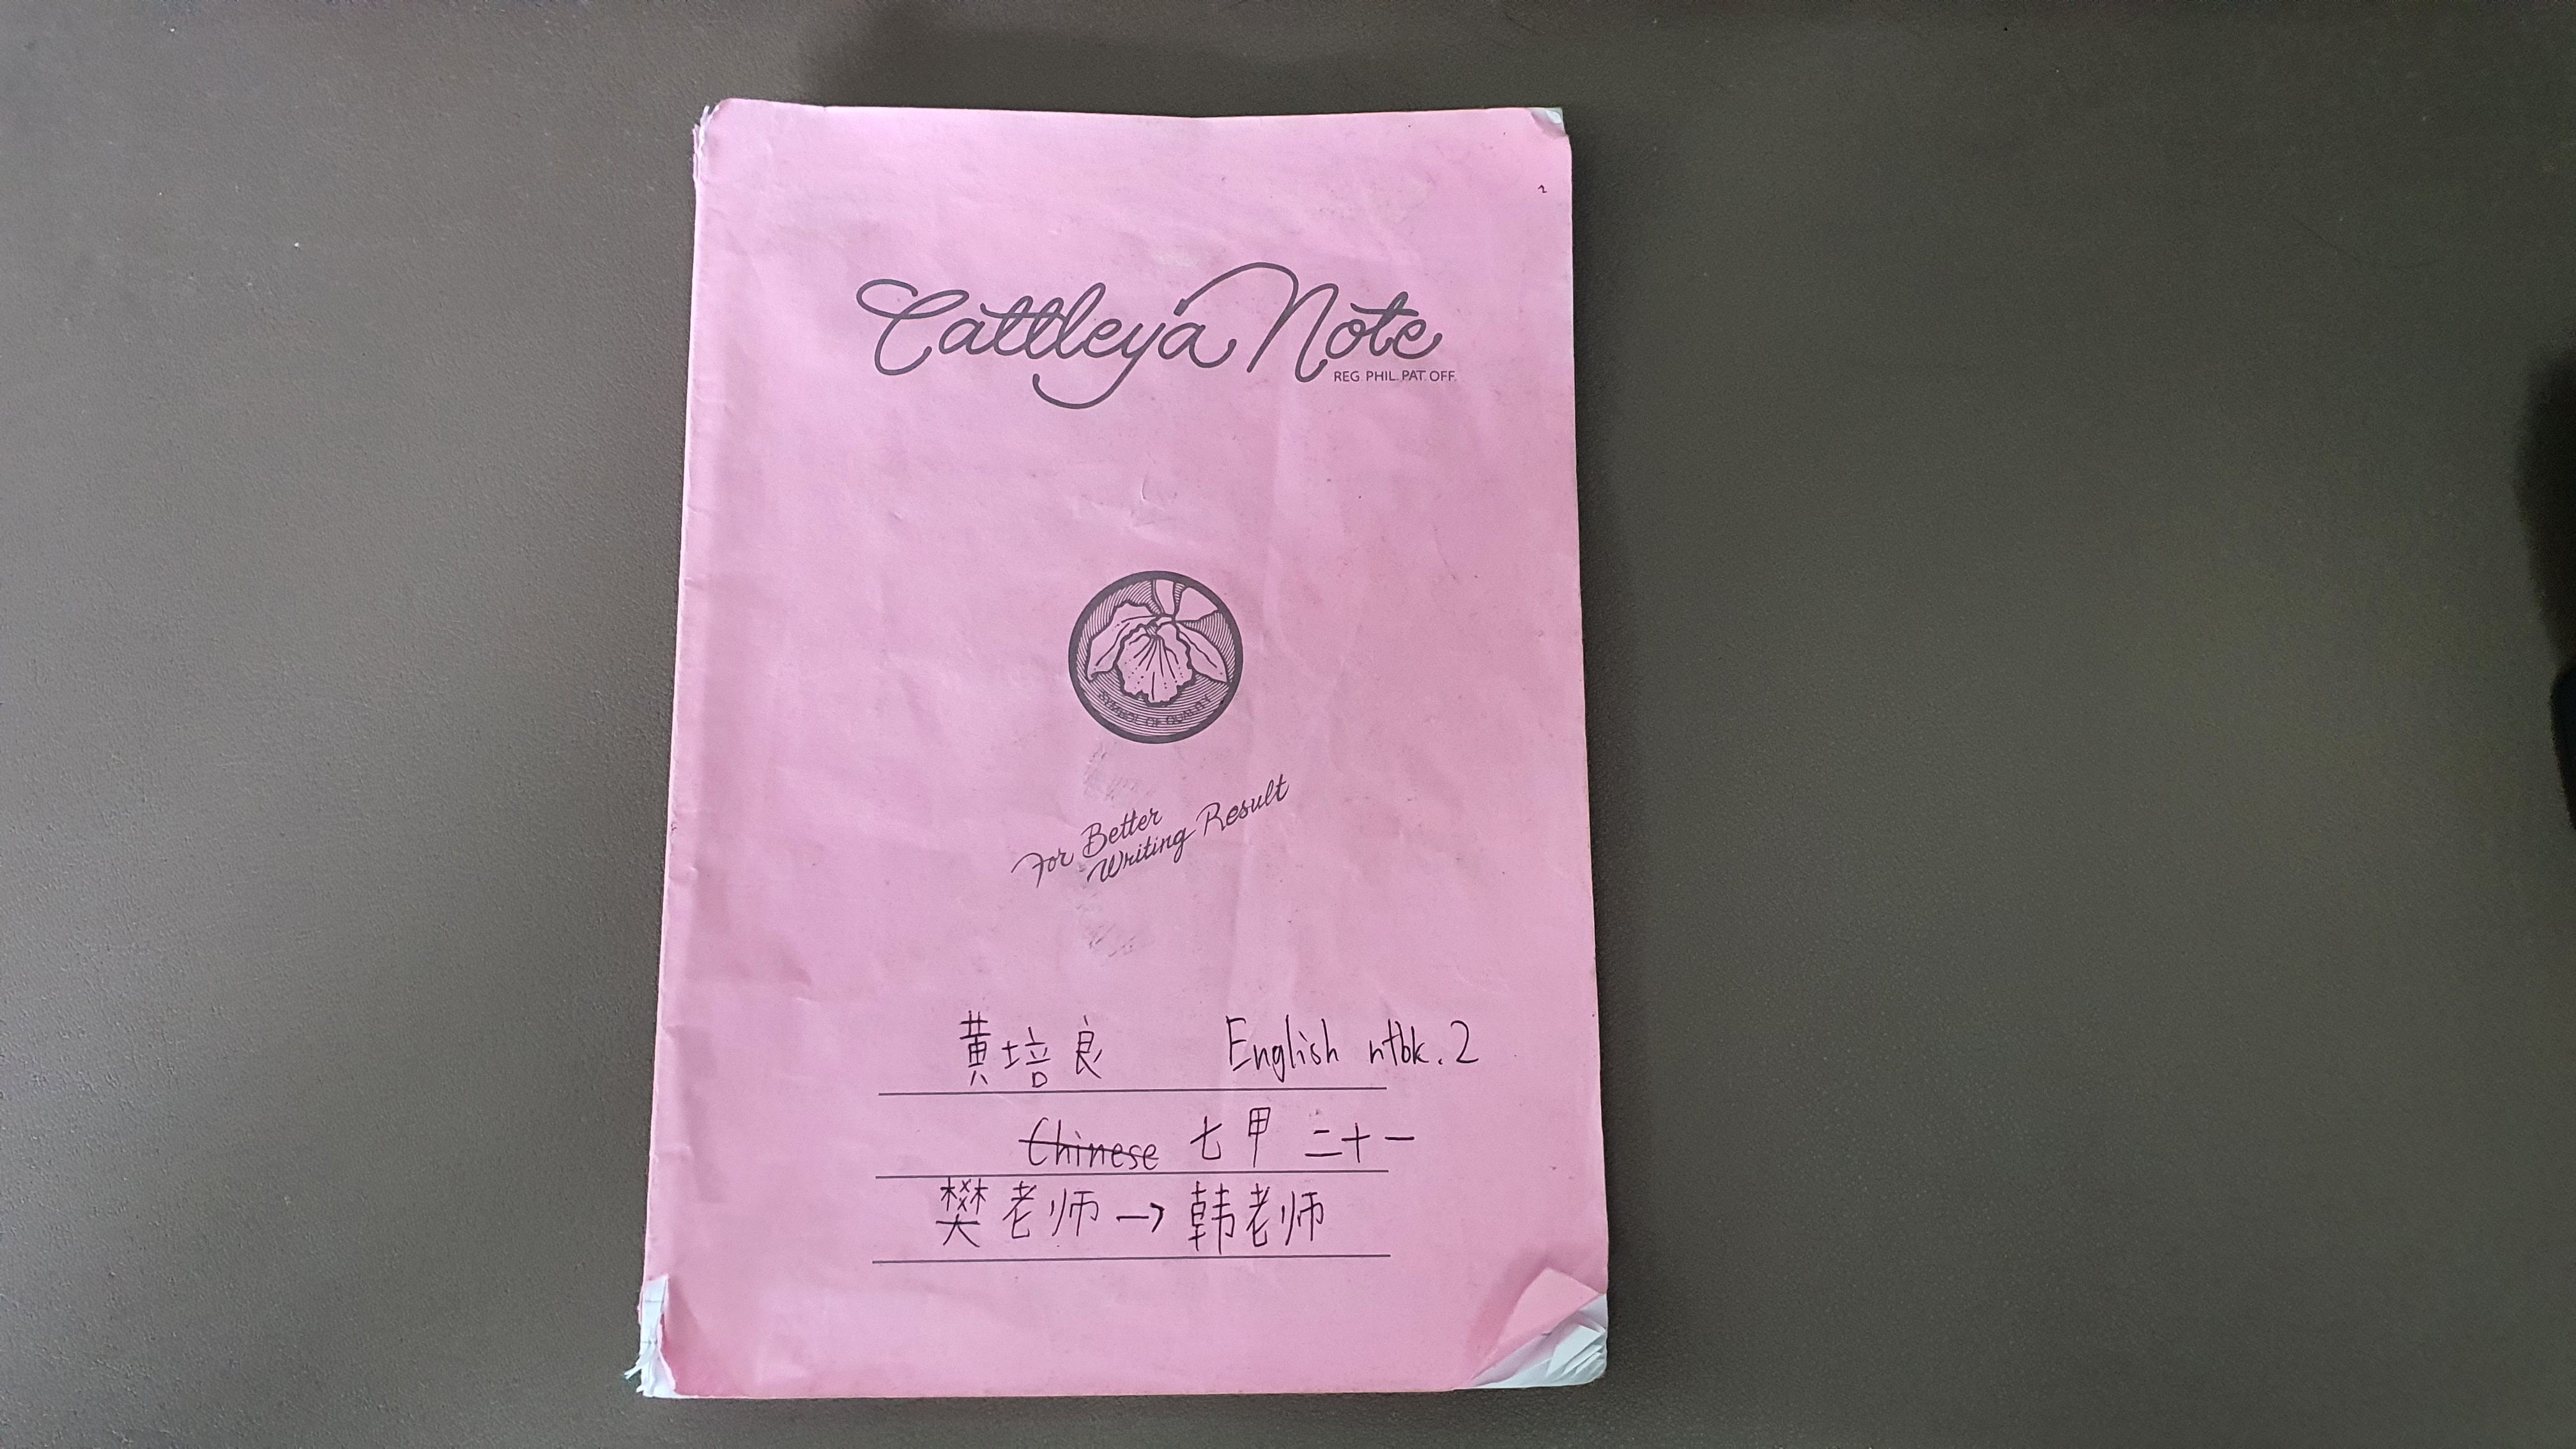 Cattleya Note
REG. PHIL. PAT. OFF.
SYMBOL OF QUALITY
For Better
Writing Result
黄培良 English ntbk. 2
Chinese 七甲 二十一
樊老师 → 韩老师